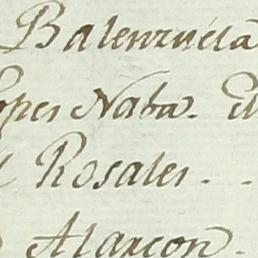 Balenzuela
Lopes Naba.
Rosales. -
Alarcon.